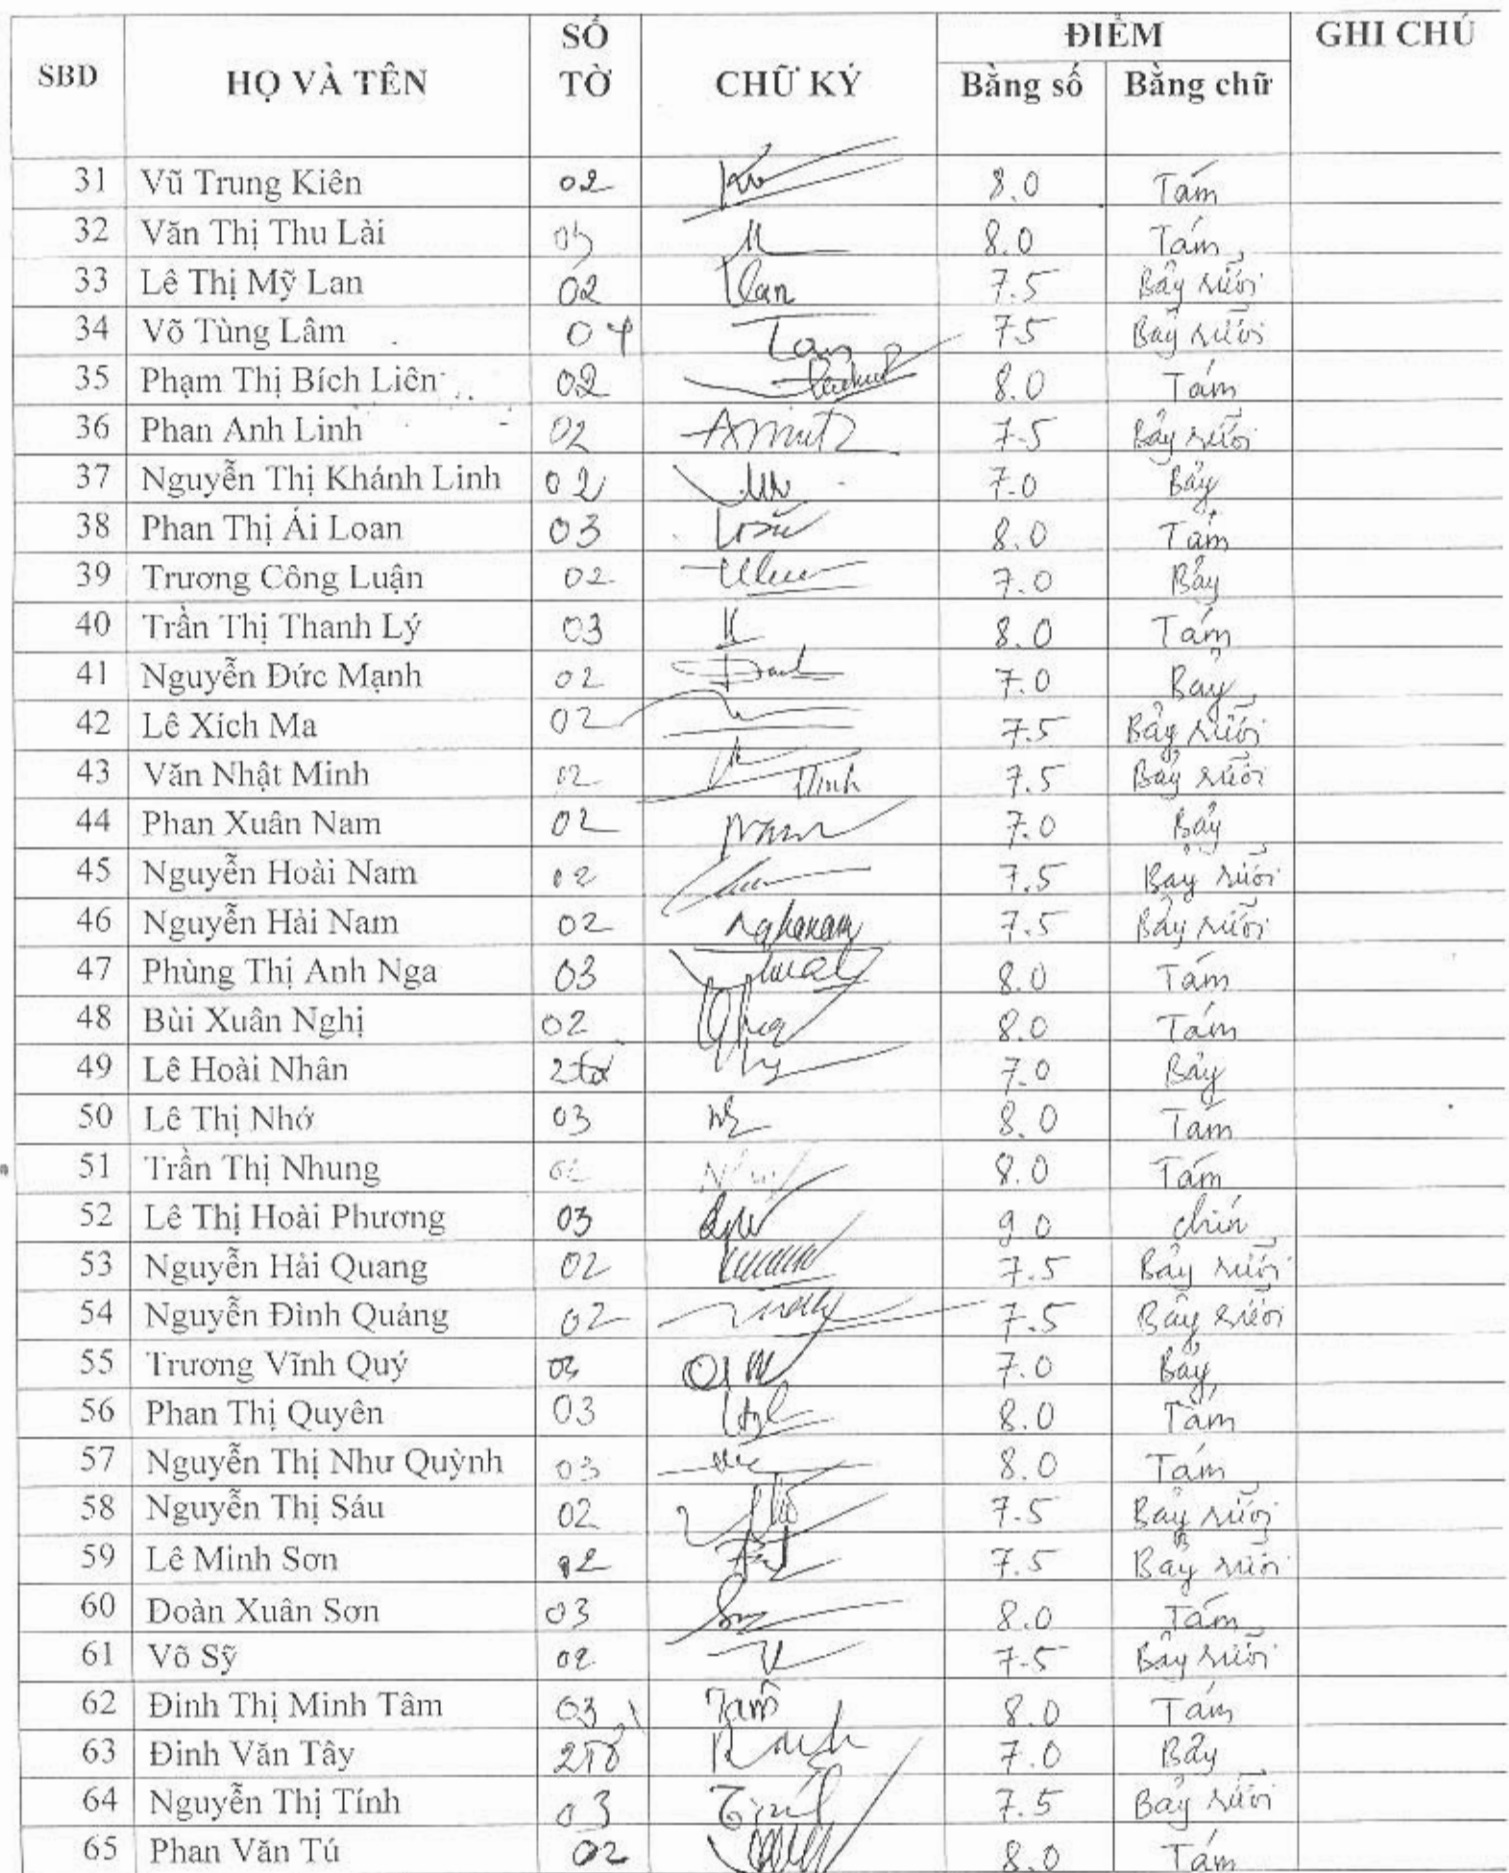 SBD HỌ VÀ TÊN SỐ TỜ CHỮ KÝ ĐIỂM GHI CHÚ
Bằng số Bằng chữ
31 Vũ Trung Kiên 02 8.0 Tám
32 Văn Thị Thu Lài 8.0 Tám
33 Lê Thị Mỹ Lan 02 Lan 7.5 Bảy rưỡi
34 Võ Tùng Lâm 04 7.5 Bảy rưỡi
35 Phạm Thị Bích Liên 02 8.0 Tám
36 Phan Anh Linh 02 7.5 Bảy rưỡi
37 Nguyễn Thị Khánh Linh 02 7.0 Bảy
38 Phan Thị Ái Loan 03 8.0 Tám
39 Trương Công Luận 02 7.0 Bảy
40 Trần Thị Thanh Lý 03 8.0 Tám
41 Nguyễn Đức Mạnh 02 7.0 Bảy
42 Lê Xích Ma 02 7.5 Bảy rưỡi
43 Văn Nhật Minh 02 Minh 7.5 Bảy rưỡi
44 Phan Xuân Nam 02 Nam 7.0 Bảy
45 Nguyễn Hoài Nam 02 7.5 Bảy rưỡi
46 Nguyễn Hải Nam 02 7.5 Bảy rưỡi
47 Phùng Thị Anh Nga 03 8.0 Tám
48 Bùi Xuân Nghị 02 8.0 Tám
49 Lê Hoài Nhân 2 tờ 7.0 Bảy
50 Lê Thị Nhớ 03 8.0 Tám
51 Trần Thị Nhung 02 8.0 Tám
52 Lê Thị Hoài Phương 03 9.0 chín
53 Nguyễn Hải Quang 02 7.5 Bảy rưỡi
54 Nguyễn Đình Quảng 02 7.5 Bảy rưỡi
55 Trương Vĩnh Quý 7.0 Bảy
56 Phan Thị Quyên 03 8.0 Tám
57 Nguyễn Thị Như Quỳnh 03 8.0 Tám
58 Nguyễn Thị Sáu 02 7.5 Bảy rưỡi
59 Lê Minh Sơn 02 7.5 Bảy rưỡi
60 Đoàn Xuân Sơn 03 8.0 Tám
61 Võ Sỹ 02 7.5 Bảy rưỡi
62 Đinh Thị Minh Tâm 03 Tâm 8.0 Tám
63 Đinh Văn Tây 2 tờ 7.0 Bảy
64 Nguyễn Thị Tính 03 Tính 7.5 Bảy rưỡi
65 Phan Văn Tú 02 8.0 Tám